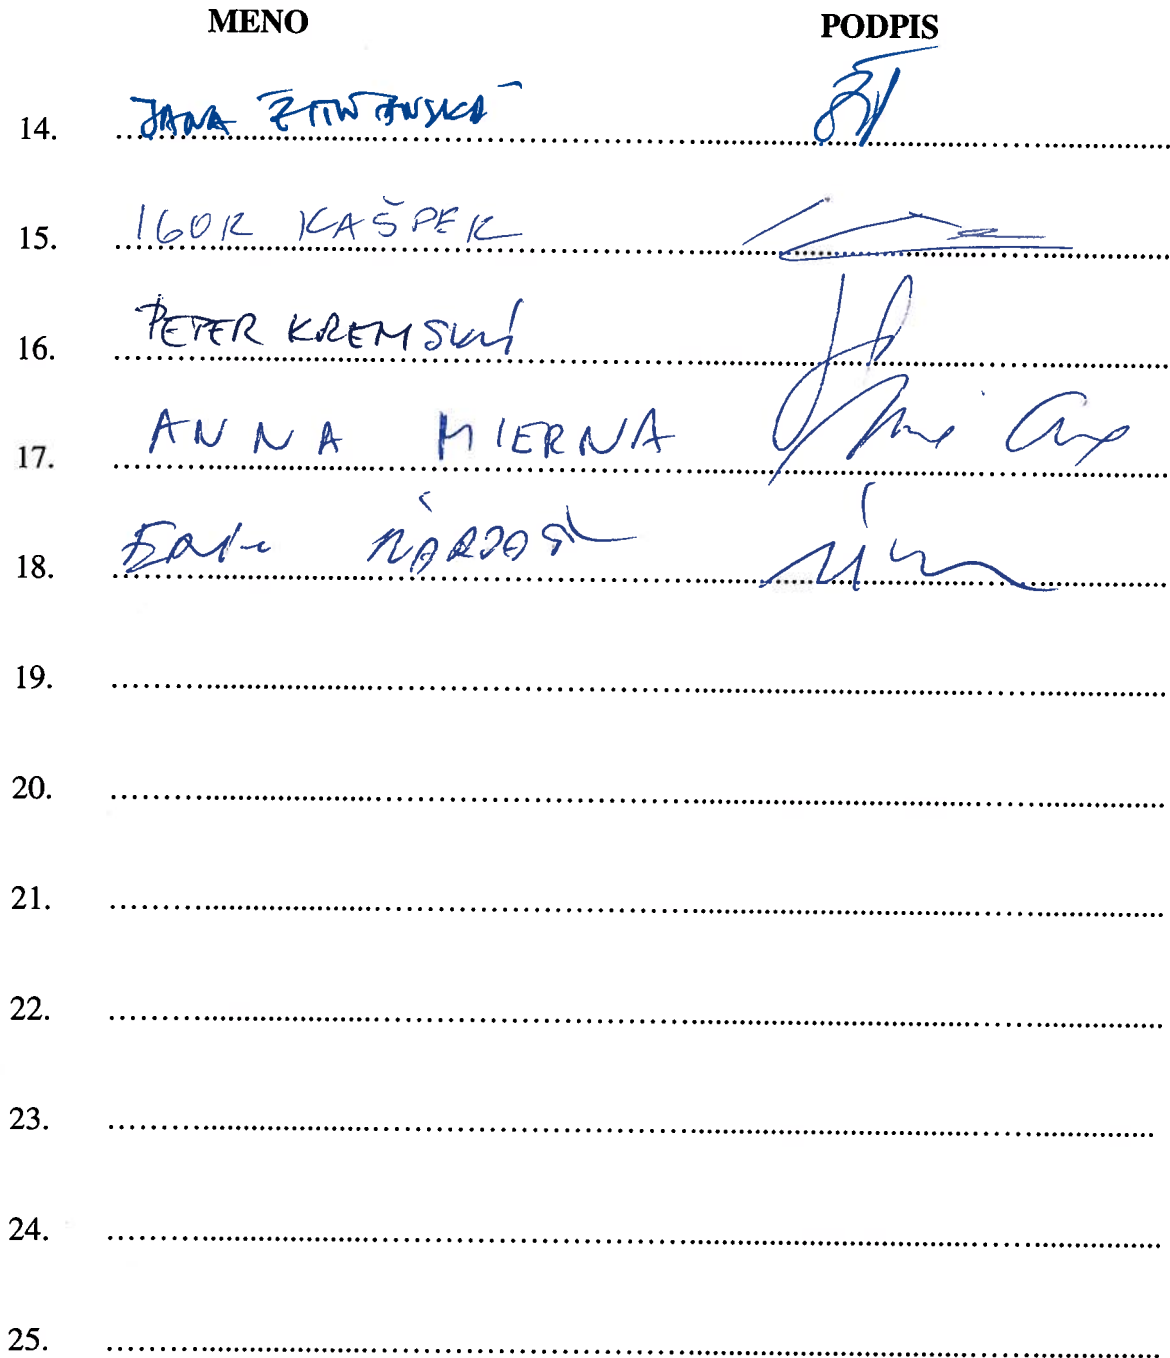 MENO PODPIS
14. JANA
15. IGOR KAŠPER
16. PETER KREMSKÝ
17. ANNA MIERNA
18.
19.
20.
21.
22.
23.
24.
25.